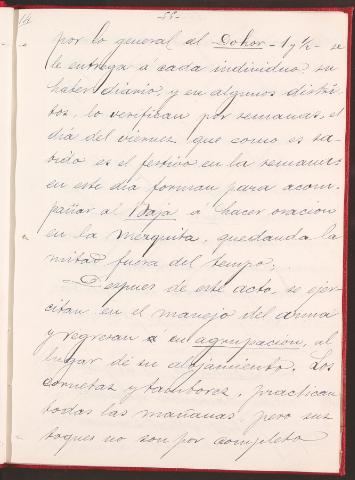 -58-
por lo general al Dohor - 1 y ½ - se
le entrega á cada individuo, su
haber diario, y en algunos distri-
tos, lo verifican por semanas, el
dia del viernes, que como es sa-
bido es el festivo en la semana;
en este dia forman para acom-
pañar al Bajá á hacer oracion
en la mezquita, quedando la
mitad fuera del tempo;
Despues de este acto, se ejer-
citan en el manejo del arma
y regresan á su agrupacion, al
lugar de su alojamiento. Los
cornetas y tambores, practican
todas las mañanas, pero sus
toques no son por completo